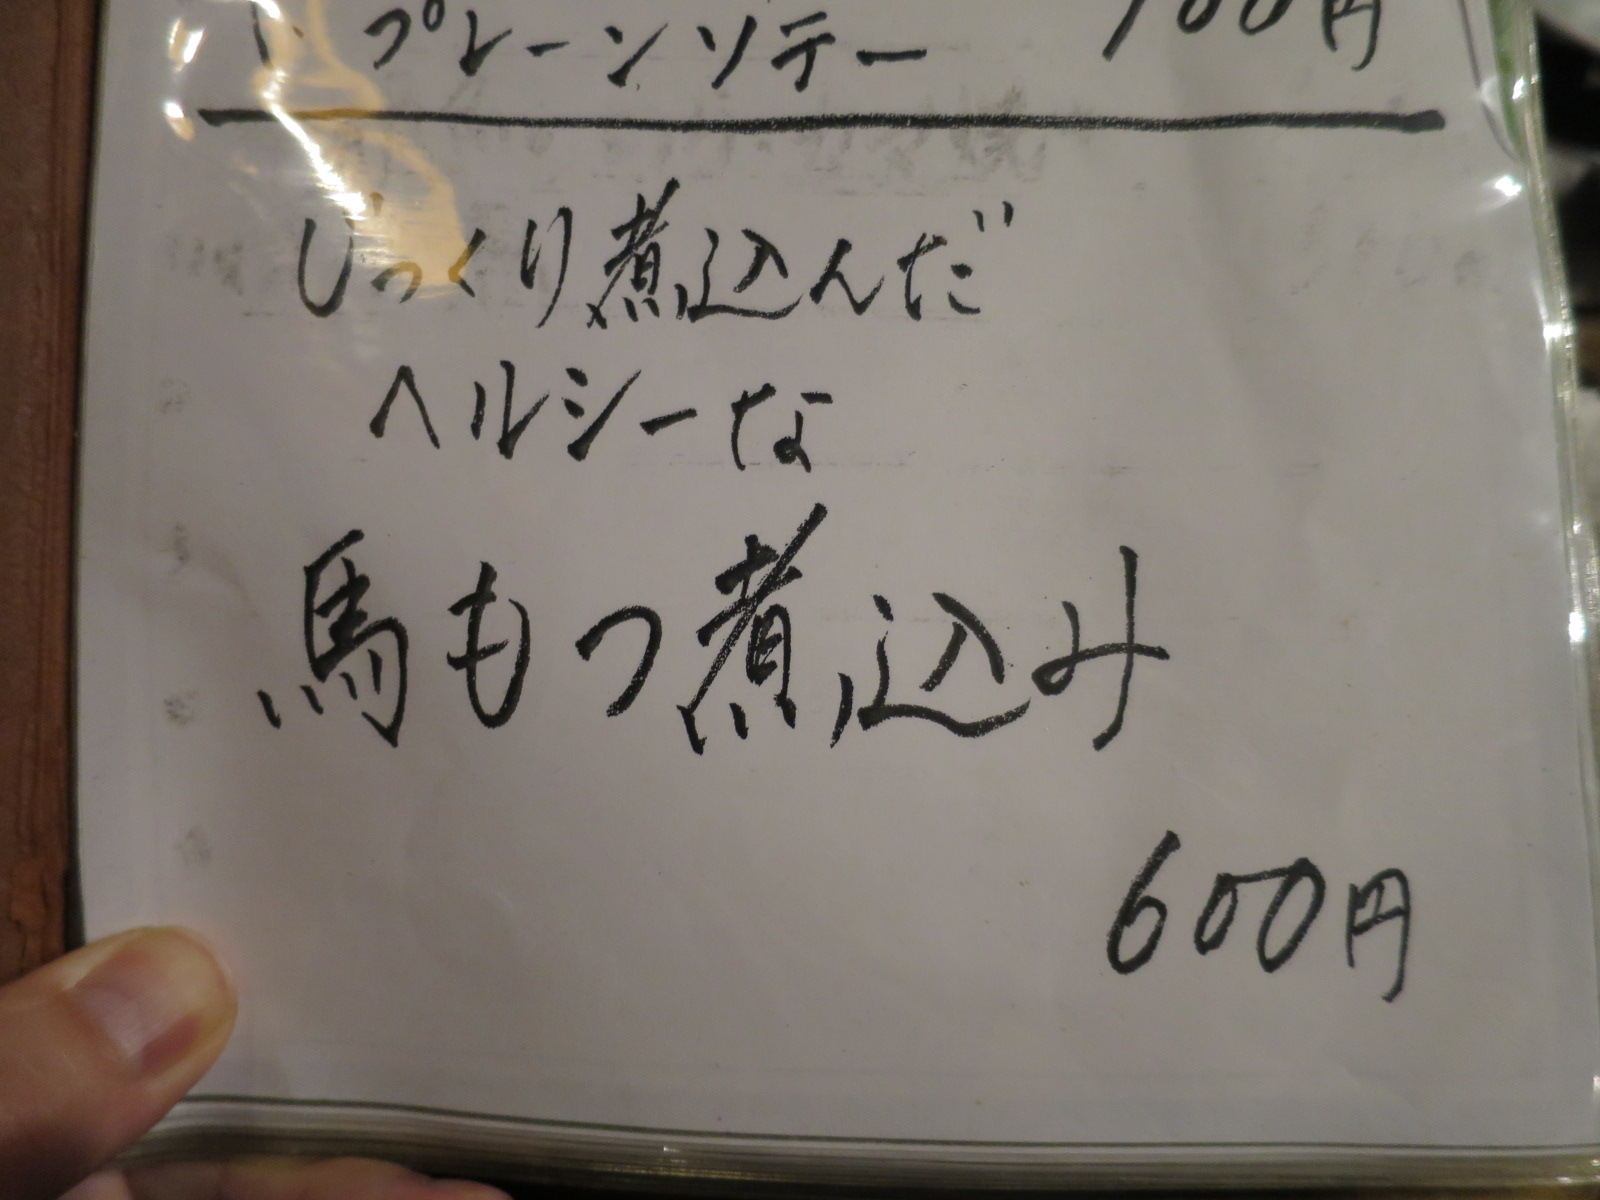 プレーンソテー
じっくり煮込んだ
ヘルシーな
馬もつ煮込み
600円